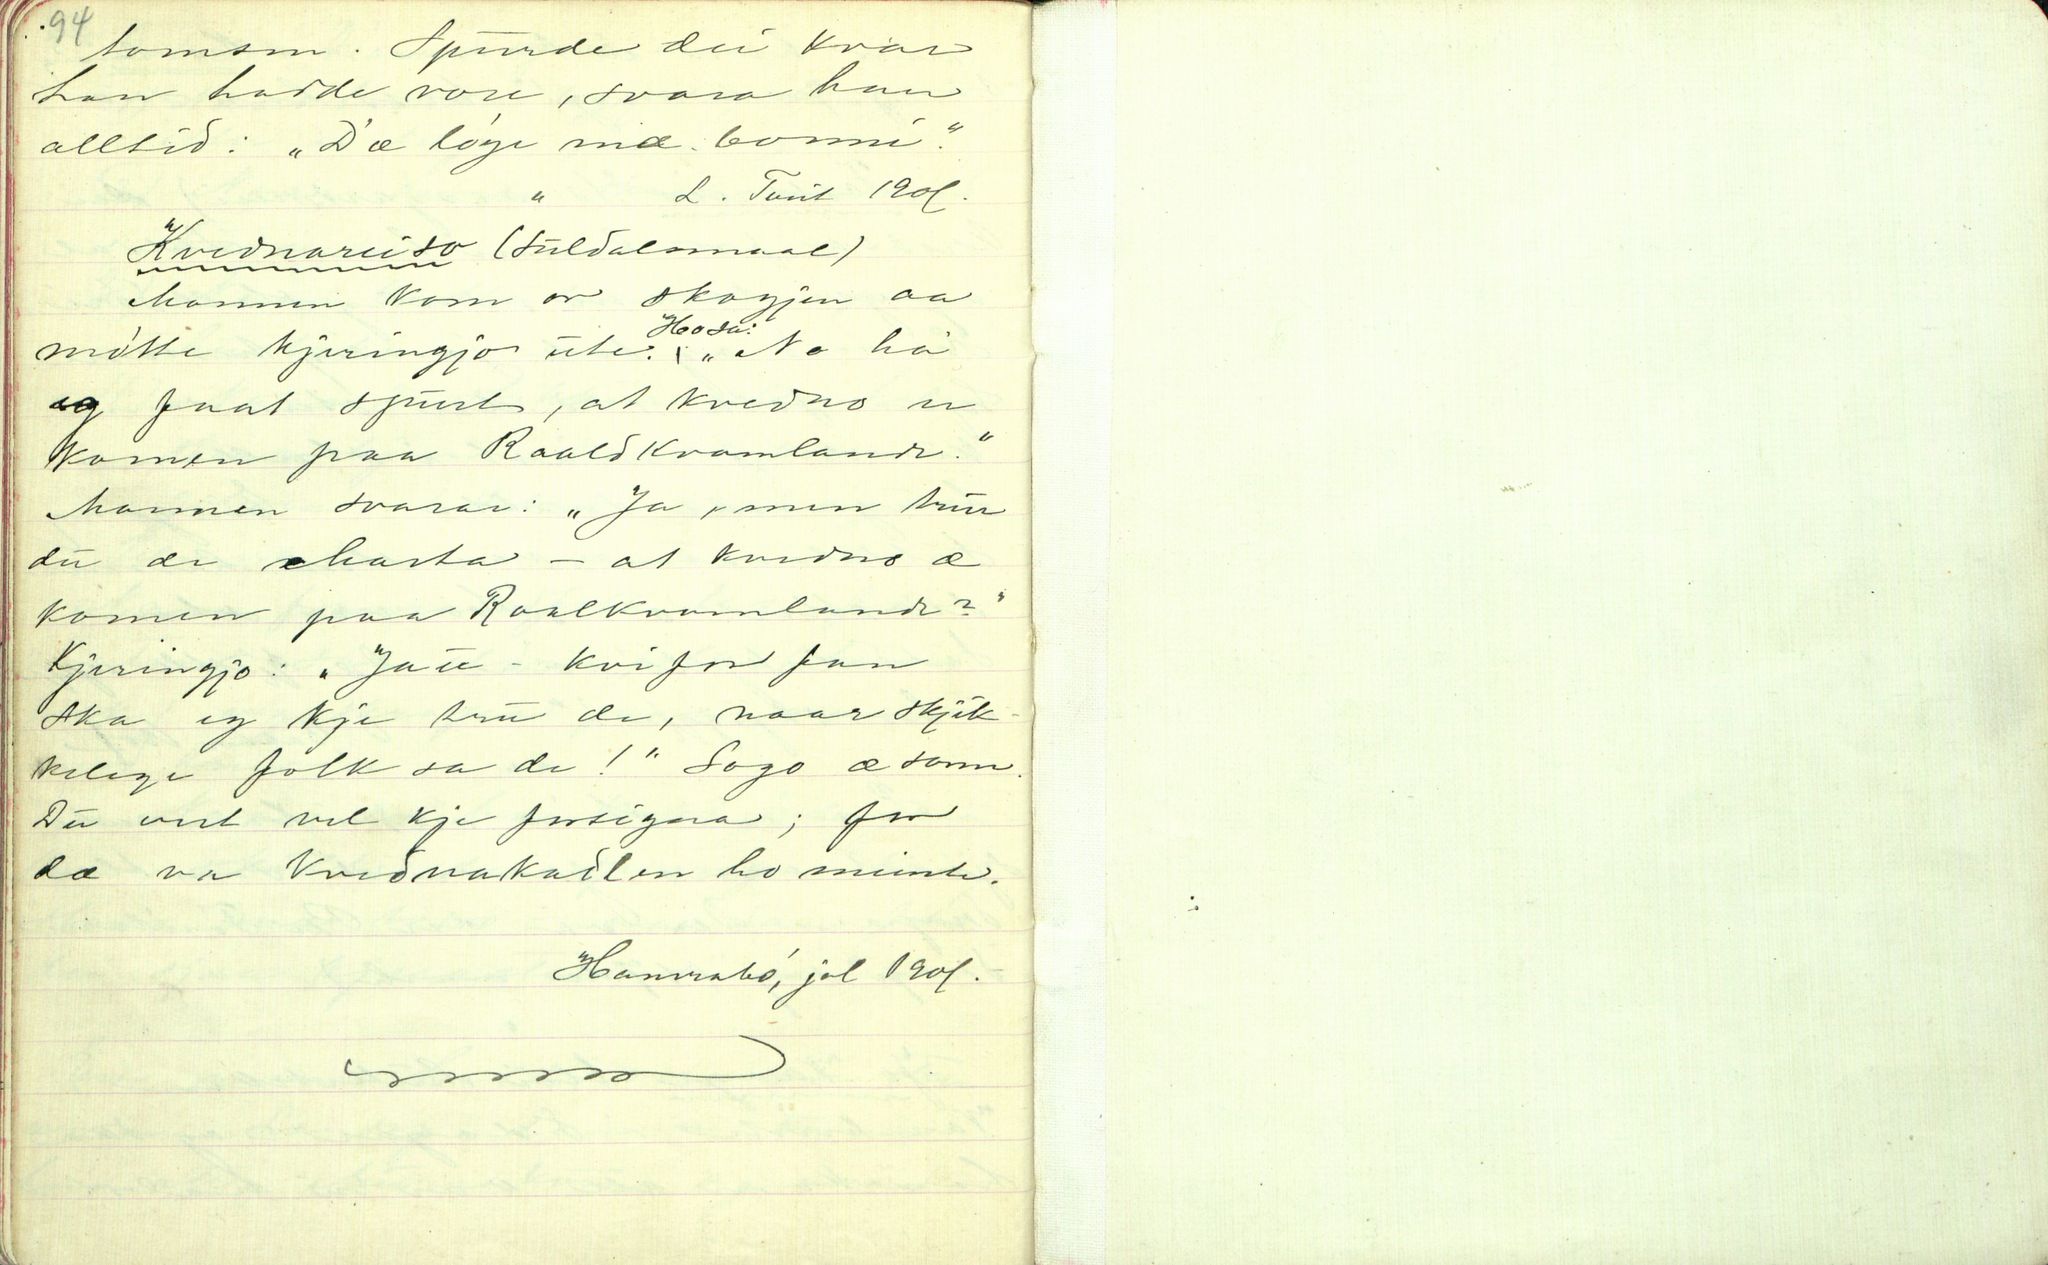 94
tomsen. Spurde dei kvar
han hadde vore, svara han
alltid: „Dæ løge mæ bonni."
" L. Tveit 1901.
Kvednareiso (Suldalsmaal)
Mannen kom or skogjen aa
møtte kjeringjo ute. Ho sa: „No hå
eg faat spurt, at kvedno er
komen paa Raaldkvamlande."
Mannen svarar: „Ja, men trur
du de Marta – at kvedno æ
komen paa Raalkvamlande?"
Kjeringjo: „Ja u – kvifor fan
ska eg kje tru de, naar skjik-
kelege folk sa de!" Sogo æ sonn.
Du vert vel kje forsigna; for
dæ va kvednakadlen ho meinte.
Hamrabø, jol 1901.